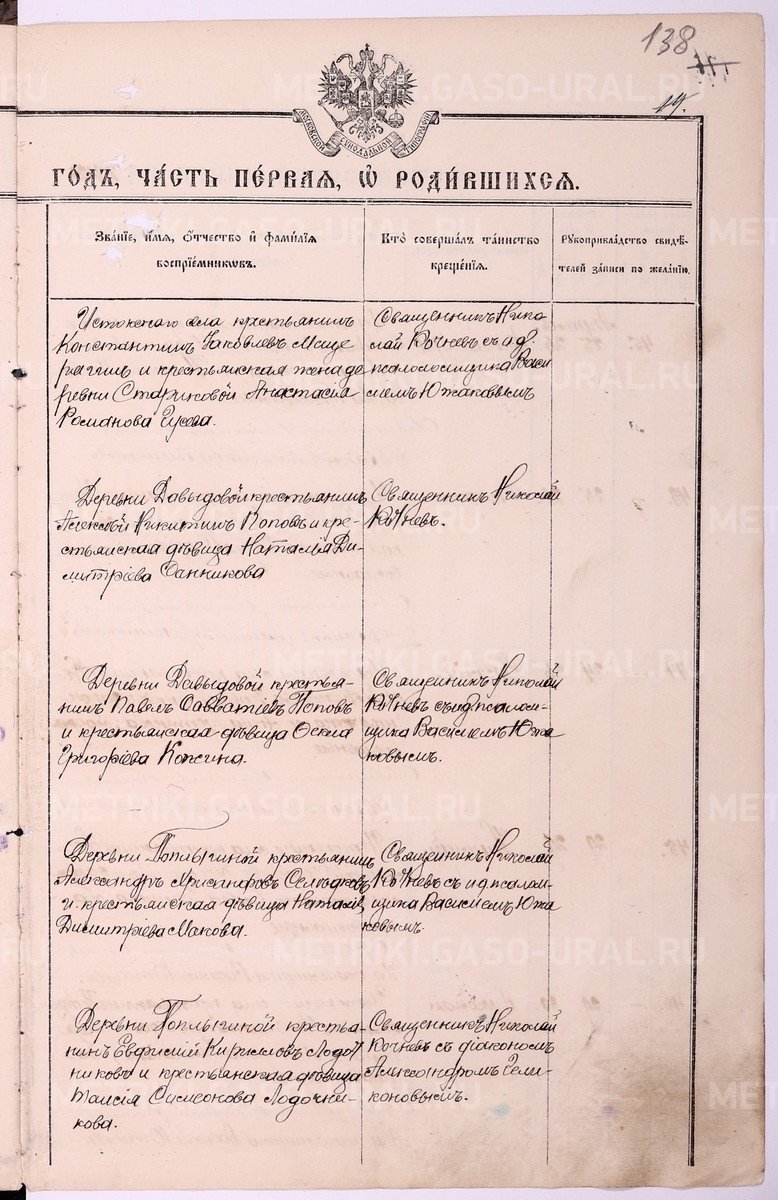 138
19.
МОСКОВСКОЙ СѴНОДАЛЬНОЙ ТИПОГРАФІИ
METRIKI.GASO-URAL.RU
ГО́ДЪ, ЧА́СТЬ ПЕ́РВАЯ, Ѡ҆ РОДИ́ВШИХСЯ.
Зва́нїе, и҆́мя, ѻ҆́тчество и҆ фами́лїя
воспрїе́мникѡвъ.
Кто̀ соверша́лъ та́инство
креще́нїя.
Рꙋкоприкла́дство свидѣ́-
телей за́писи по жела́нїю.
Истокского села крестьянинъ
Константинъ Іаковлевъ Меще
рягинъ и крестьянская жена де
ревни Стариковой Анастасія
Романова Гусева.
Священникъ Нико
лай Кочневъ съ и.д.
псаломщика Васи
ліемъ Южаковымъ
Деревни Давыдовой крестьянинъ
Алексѣй Никитинъ Поповъ и кре-
стьянская дѣвица Наталія Ди-
митріева Санникова
Священникъ Николай
Кочневъ.
Деревни Давыдовой крестья-
нинъ Павелъ Савватіевъ Поповъ
и крестьянская дѣвица
Григорієва Коксина.
Священникъ Николай
Кочневъ съ ид псалом-
щика Василіемъ Южа
ковымъ.
Деревни Топлыгиной крестьянинъ
Александръ Хрисанфовъ
и крестьянская дѣвица Наталія
Димитріева Макова.
Священникъ Николай
Кочневъ съ и д псалом-
щика Василіемъ Южа
ковымъ.
Деревни Топлыгиной крестья-
нинъ Евфимій Кирилловъ Лодоч
никовъ и крестьянская дѣвица
Таисія Симеонова Лодочни-
кова.
Священникъ Николай
Кочневъ съ діакономъ
Александромъ Гели-
коновымъ.